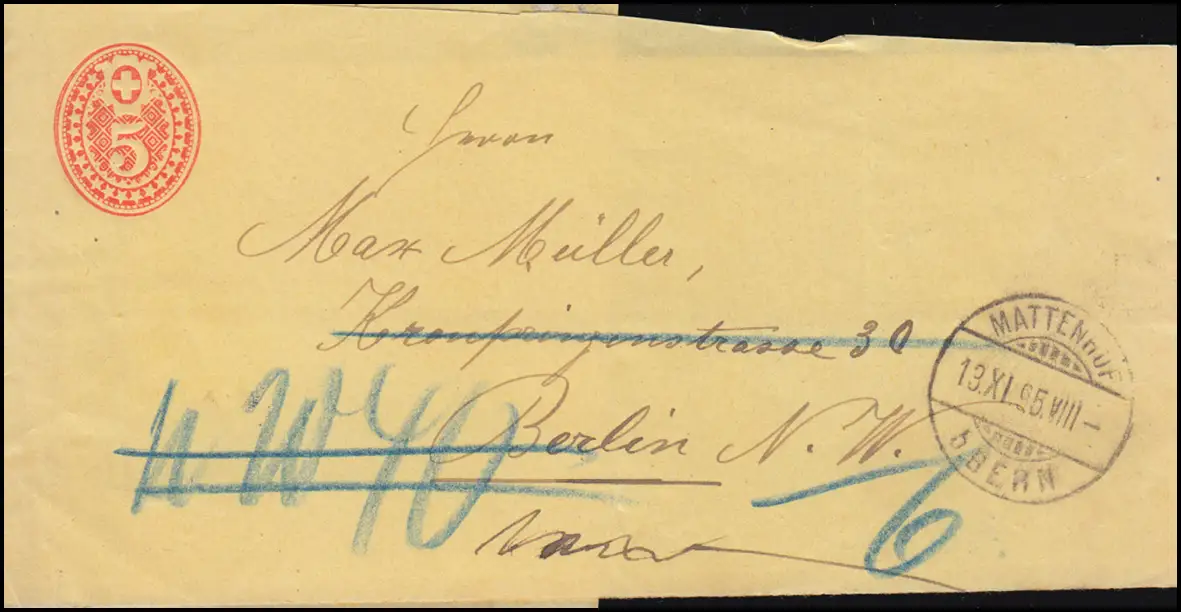 5
Herrn
Max Müller,
Kronprinzenstrasse 30
Berlin N. W.
N W 40
6
MATTENHOF
13.XI.95.VIII-1
b. BERN